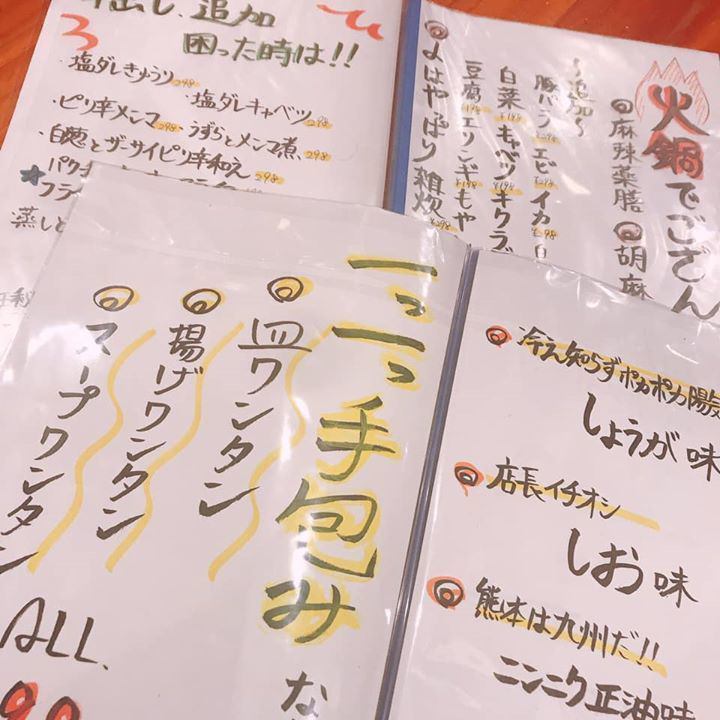 追加
困った時は!!
・塩ダレきゅうり 298
・塩ダレキャベツ 298
・ピリ辛メンマ 298
・うずらとメンマ煮 298
・白葱とザーサイピリ辛和え 298
火鍋でござん
麻辣薬膳
胡麻
〜追加〜
豚バラ エビ イカ
白菜 キャベツ キクラ
豆腐 エリンギ もや
よはやっぱり雑炊
一つ一つ手包み
皿ワンタン
揚げワンタン
スープワンタン
ALL.
な
冷え知らずポカポカ
しょうが味
店長イチオシ
しお味
熊本は九州だ!!
ニンニク正油味